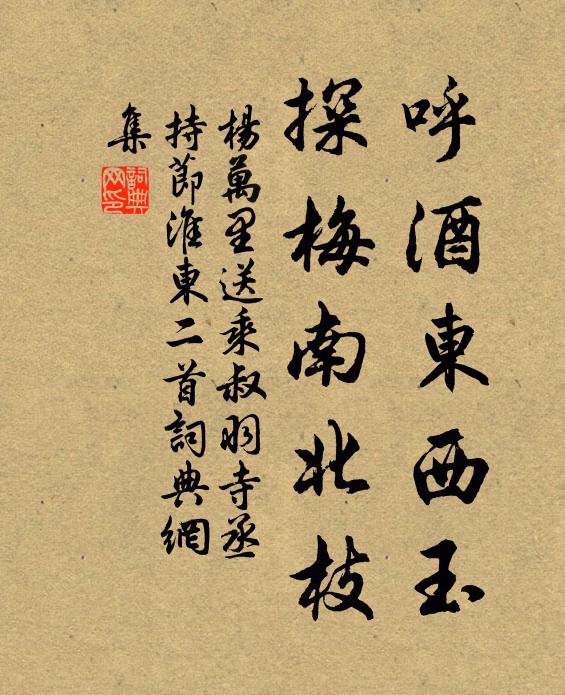 呼酒東西玉
探梅南北枝
楊萬里送乘叔羽寺丞
持節淮東二首詞典網
集
詞典網印